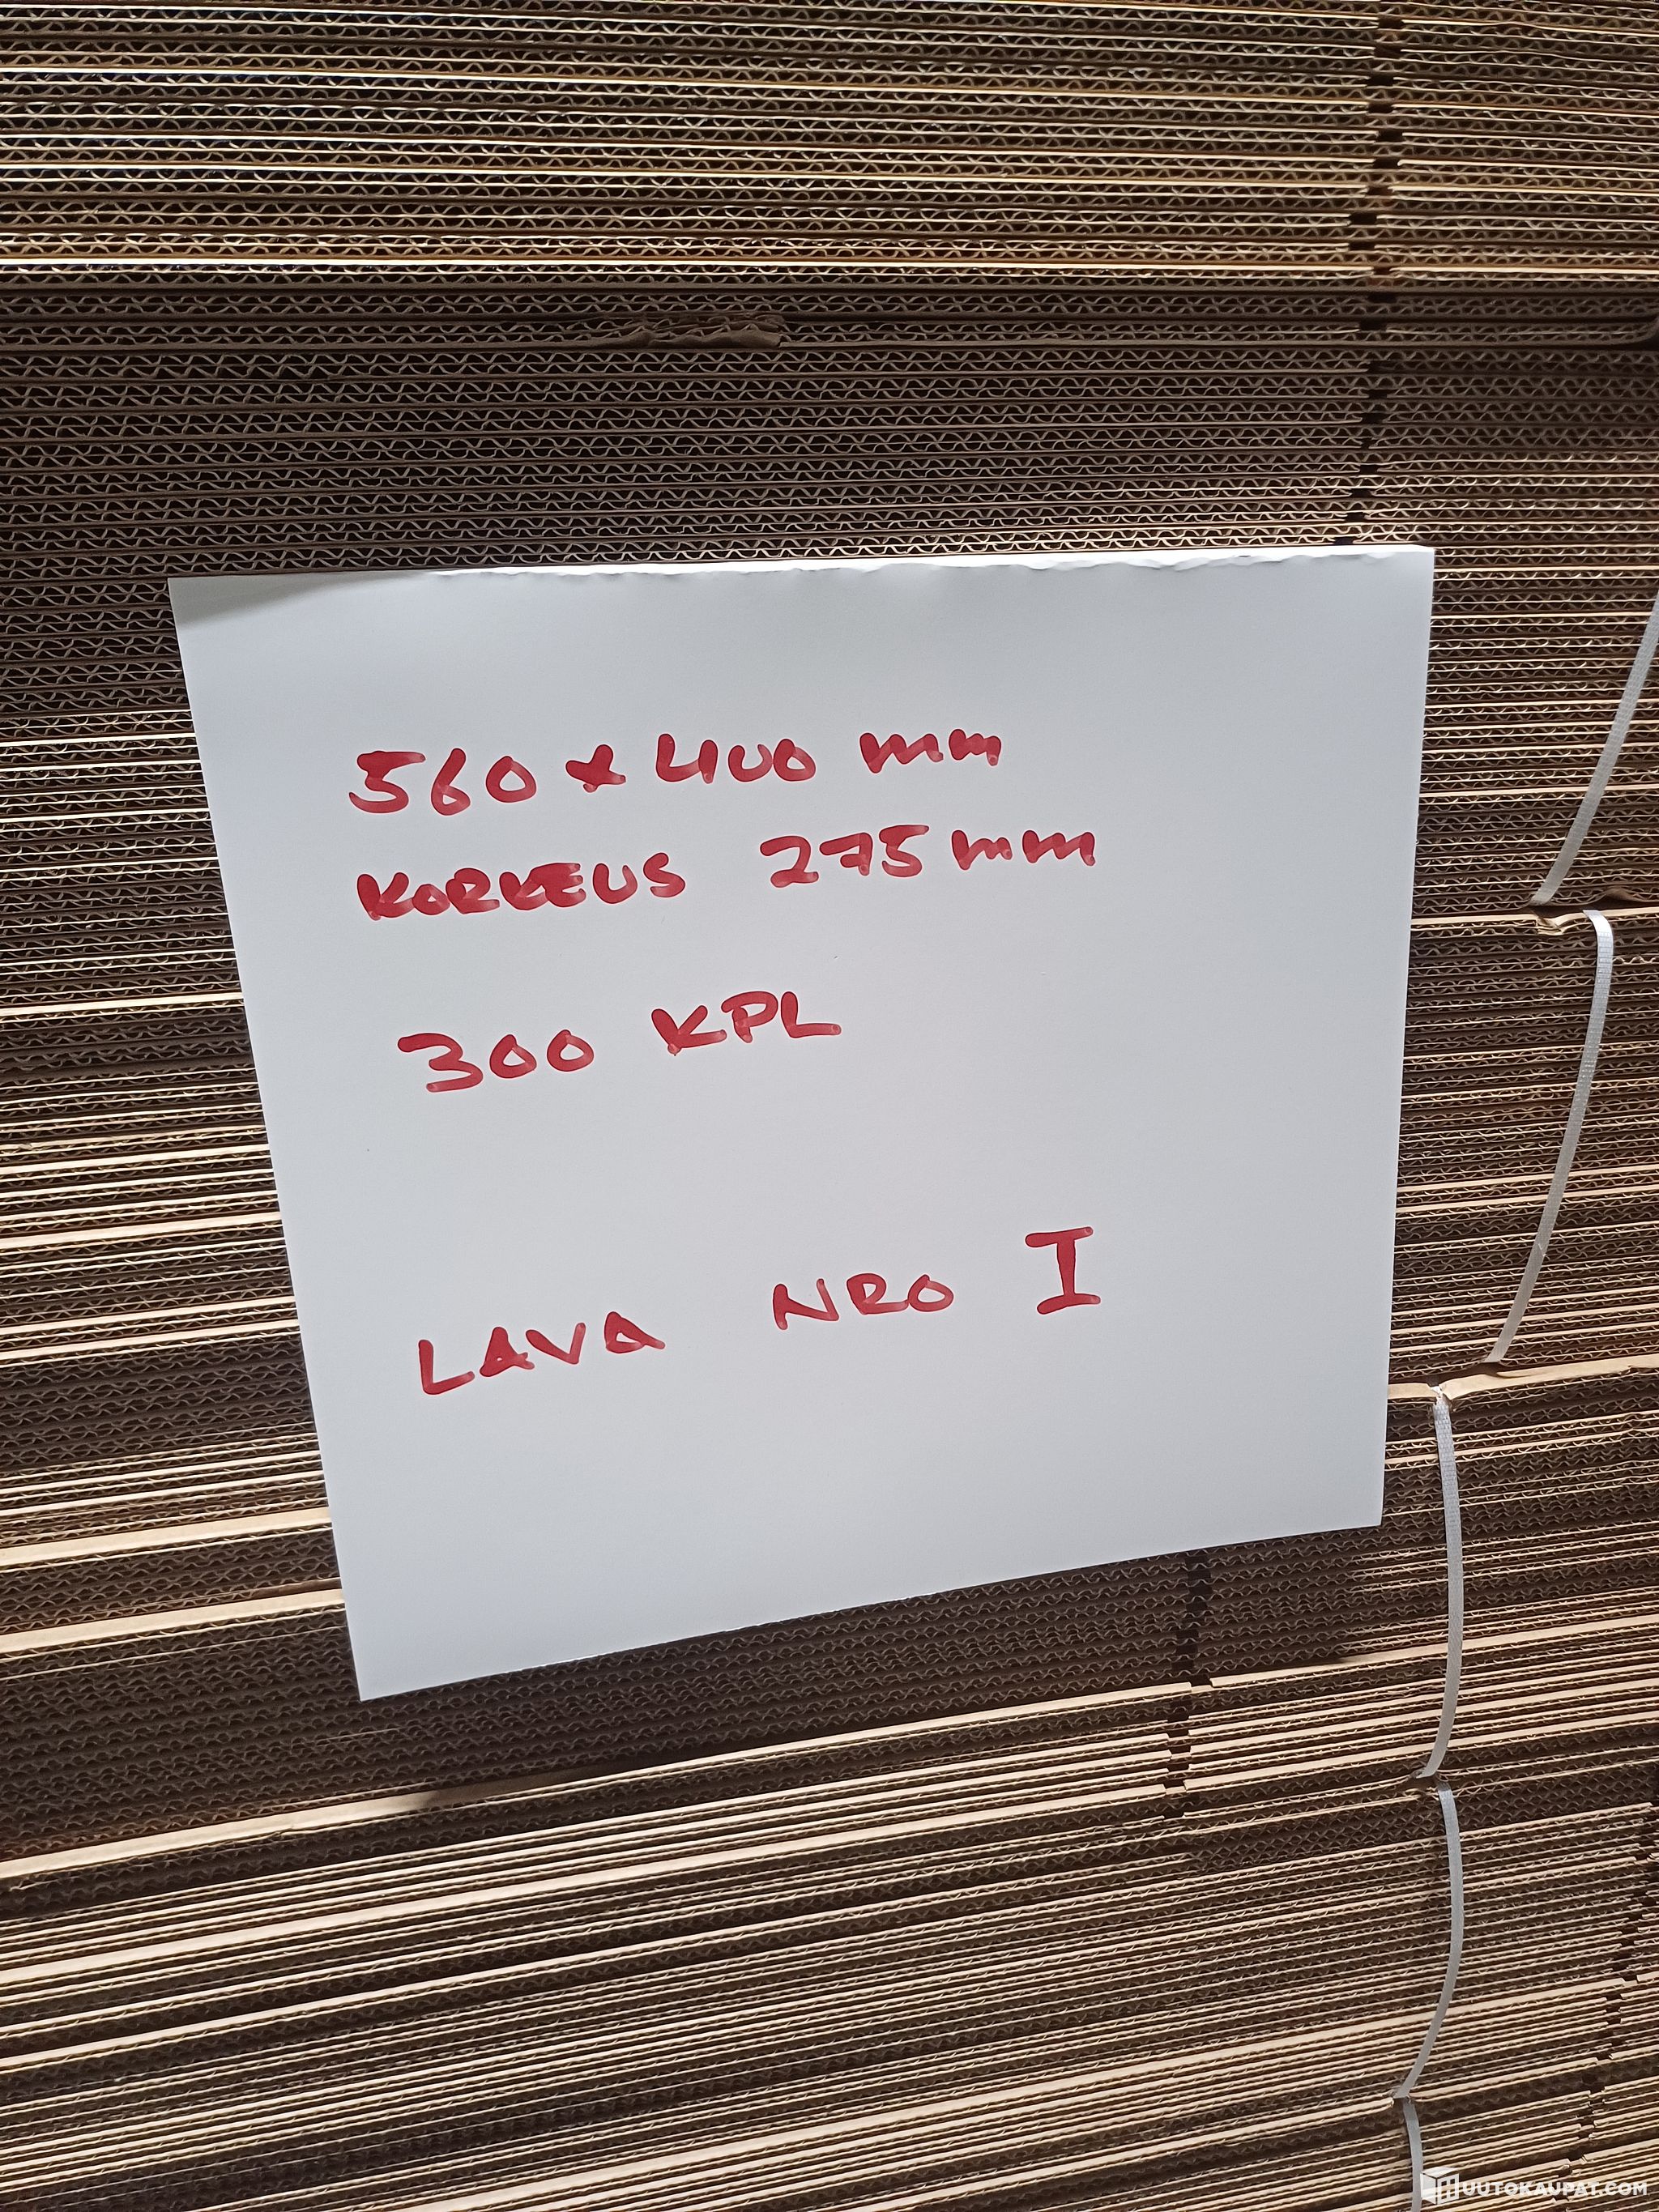 560 x 400 mm
KORKEUS 275 mm
300 KPL
LAVA NRO I
HUUTOKAUPAT.COM